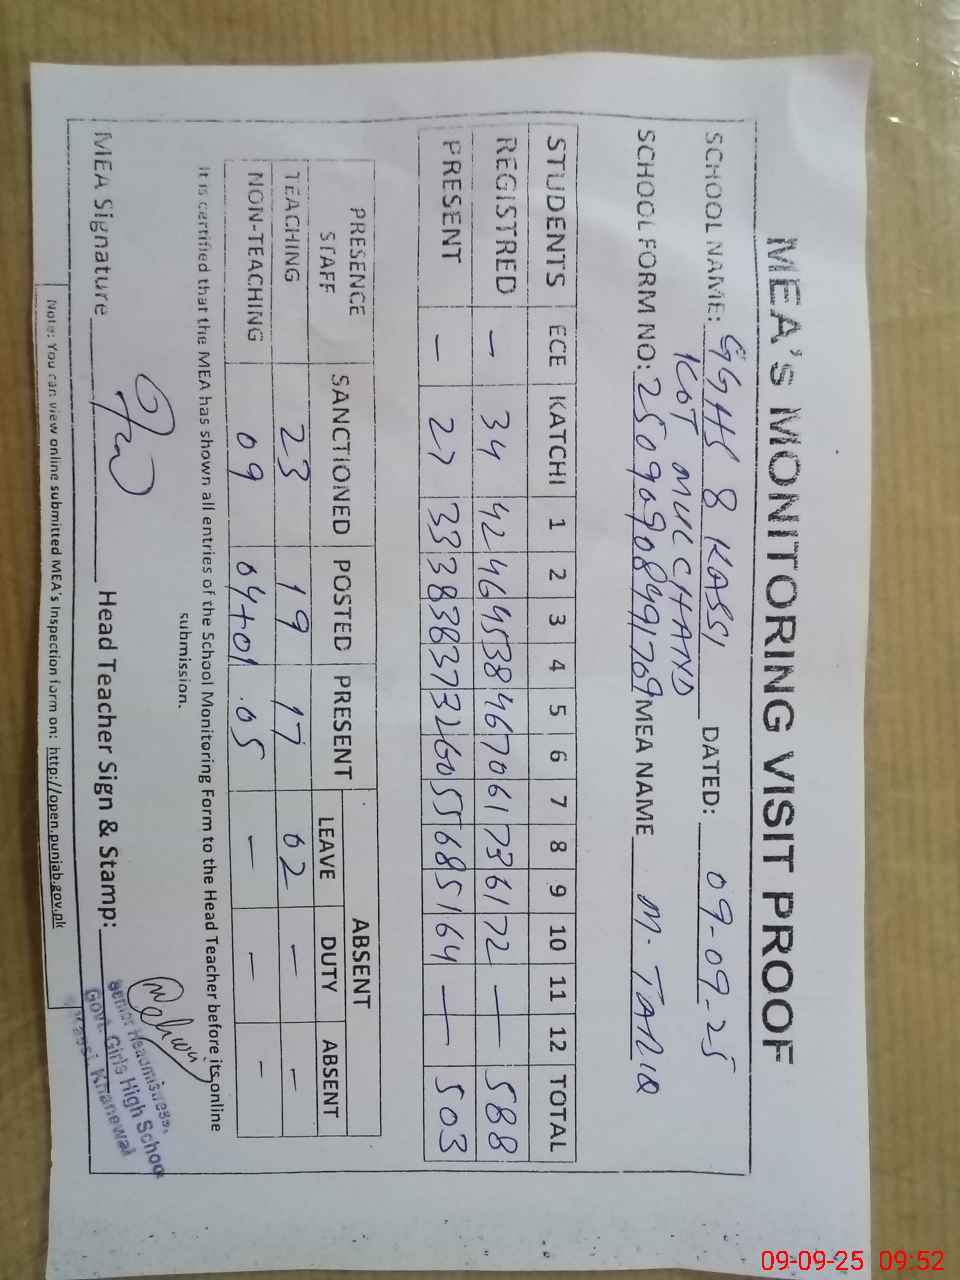 MEA'S MONITORING VISIT PROOF
SCHOOL NAME: GGHS 8 KASSI DATED: 09-09-25
KOT MULCHAND
SCHOOL FORM NO: 250909084991769 MEA NAME M. TARIQ
STUDENTS ECE KATCHI 1 2 3 4 5 6 7 8 9 10 11 12 TOTAL
REGISTRED - 34 42 46 45 38 46 70 61 73 61 72 — 588
PRESENT - 27 33 38 38 37 32 60 55 68 51 64 — 503
PRESENCE STAFF SANCTIONED POSTED PRESENT ABSENT
LEAVE DUTY ABSENT
TEACHING 23 19 17 02 - -
NON-TEACHING 09 04+01 05 - - -
It is certified that the MEA has shown all entries of the School Monitoring Form to the Head Teacher before its online
submission.
MEA Signature Head Teacher Sign & Stamp:
Senior Headmistress,
Govt. Girls High School
8 Kassi, Khanewal
Note: You can view online submitted MEA's Inspection form on: http://open.punjab.gov.pk
09-09-25 09:52